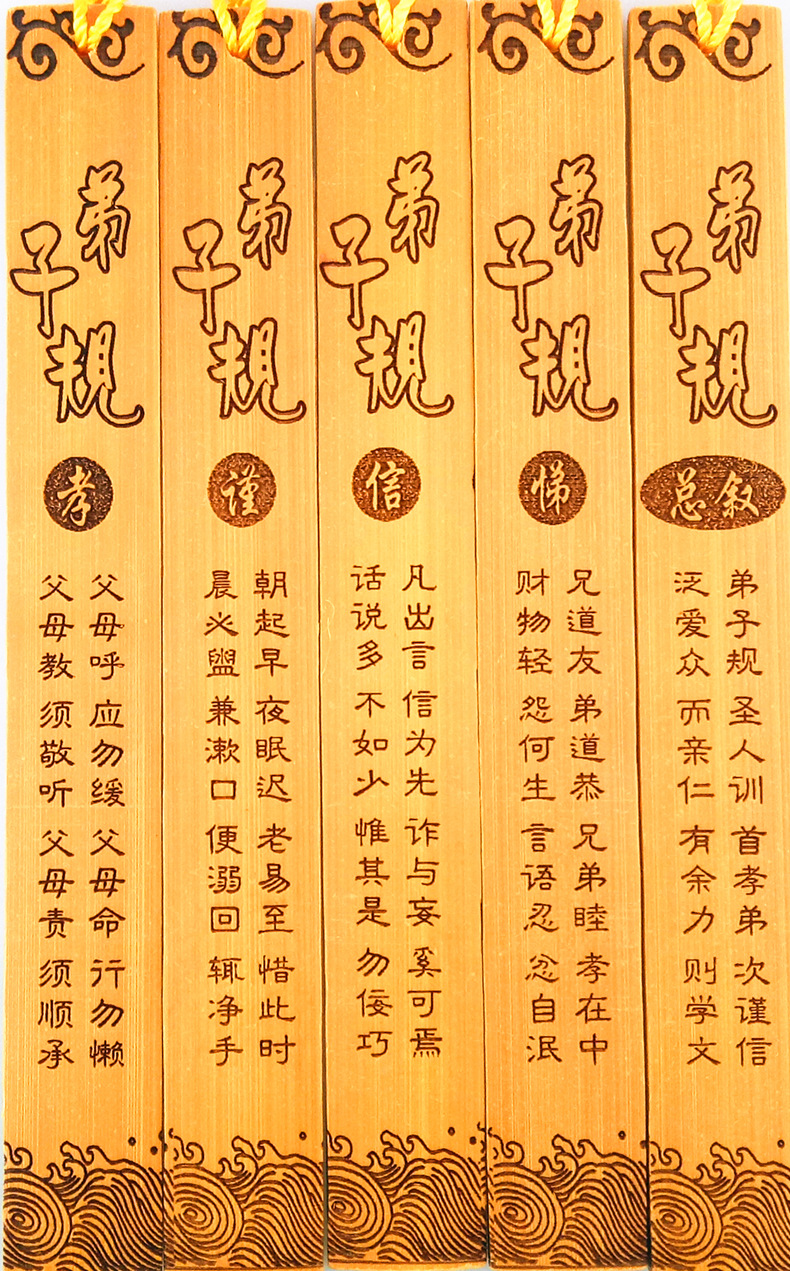 弟子规
总叙
弟子规 圣人训 首孝弟 次谨信
泛爱众 而亲仁 有余力 则学文
弟子规
悌
兄道友 弟道恭 兄弟睦 孝在中
财物轻 怨何生 言语忍 忿自泯
弟子规
信
凡出言 信为先 诈与妄 奚可焉
话说多 不如少 惟其是 勿佞巧
弟子规
谨
朝起早 夜眠迟 老易至 惜此时
晨必盥 兼漱口 便溺回 辄净手
弟子规
孝
父母呼 应勿缓 父母命 行勿懒
父母教 须敬听 父母责 须顺承